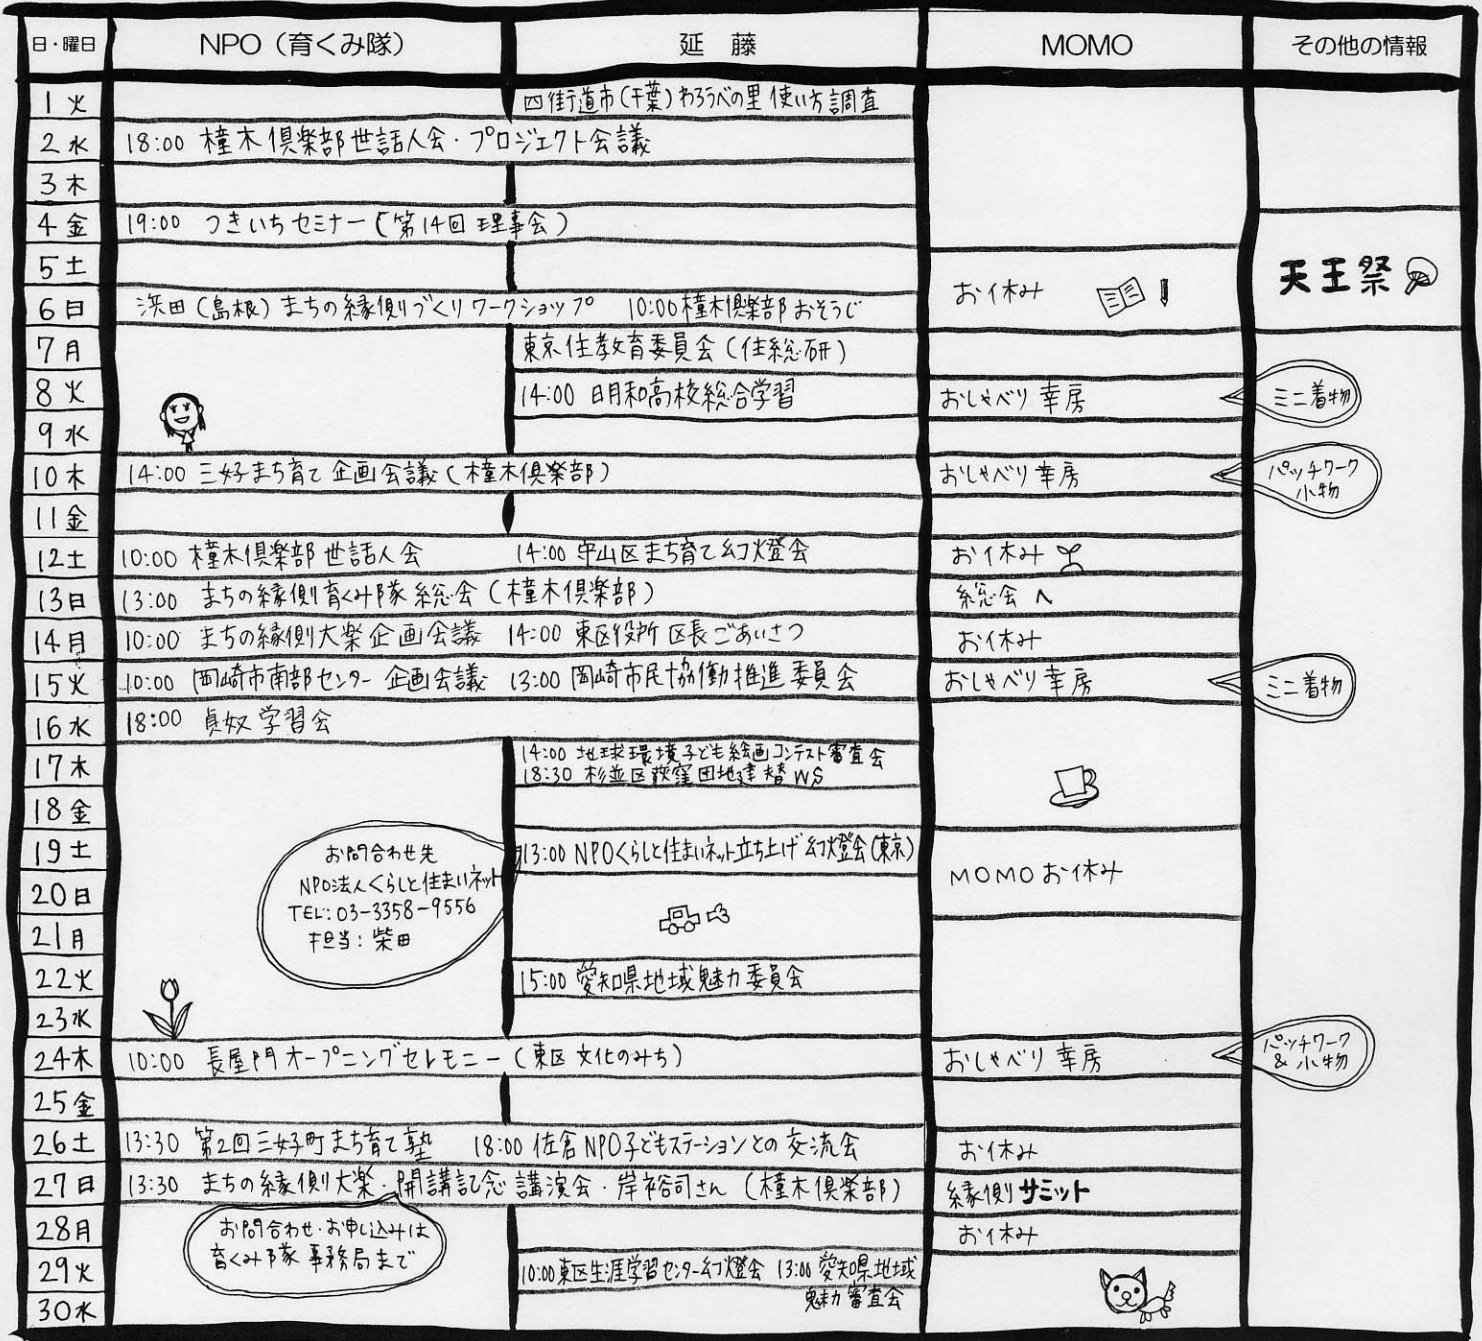 日・曜日 NPO（育くみ隊） 延藤 MOMO その他の情報
1 火 四街道市(千葉)わろうべの里 使い方調査
2 水 18:00 橦木倶楽部世話人会・プロジェクト会議
3 木
4 金 19:00 つきいちセミナー(第14回 理事会)
5 土
お休み
天王祭
6 日 浜田(島根)まちの縁側づくりワークショップ 10:00橦木倶楽部おそうじ
7 月 東京住教育委員会(住総研)
8 火 14:00 明和高校総合学習 おしゃべり幸房 ミニ着物
9 水
10 木 14:00 三好まち育て企画会議(橦木倶楽部) おしゃべり幸房 パッチワーク
小物
11 金
12 土 10:00 橦木倶楽部世話人会 14:00 守山区まち育て幻燈会 お休み
13 日 13:00 まちの縁側育くみ隊総会(橦木倶楽部) 総会へ
14 月 10:00 まちの縁側大楽企画会議 14:00 東区役所区長ごあいさつ お休み
15 火 10:00 岡崎市南部センター企画会議 13:00 岡崎市民協働推進委員会 おしゃべり幸房 ミニ着物
16 水 18:00 貞奴学習会
17 木 14:00 地球環境子ども絵画コンテスト審査会
18:30 杉並区荻窪団地建替WS
18 金
19 土 13:00 NPOくらしと住まいネット立ち上げ幻燈会(東京)
お問合わせ先
NPO法人くらしと住まいネット
TEL:03-3358-9556
担当:柴田
MOMOお休み
20 日
21 月
22 火 15:00 愛知県地域魅力委員会
23 水
24 木 10:00 長屋門オープニングセレモニー(東区文化のみち) おしゃべり幸房 パッチワーク
&小物
25 金
26 土 13:30 第2回三好町まち育て塾 18:00 佐倉NPO子どもステーションとの交流会 お休み
27 日 13:30 まちの縁側大楽・開講記念講演会・岸裕司さん(橦木倶楽部) 縁側サミット
28 月 お休み
お問合わせ・お申し込みは
育くみ隊事務局まで
29 火 10:00東区生涯学習センター幻燈会 13:00 愛知県地域
魅力審査会
30 水